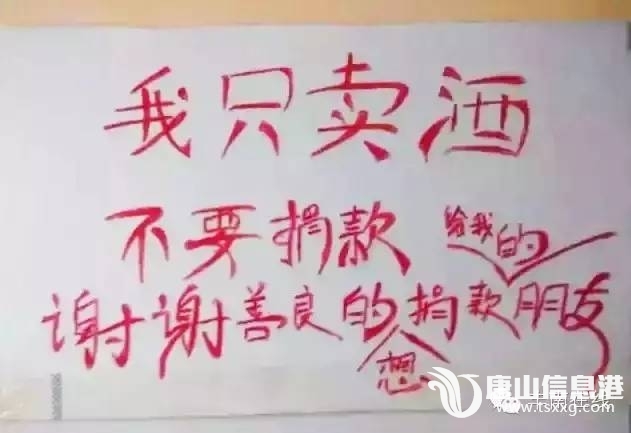 我只卖酒
不要捐款
谢谢善良的想捐款给我的朋友
唐山信息港
www.tsxxg.com